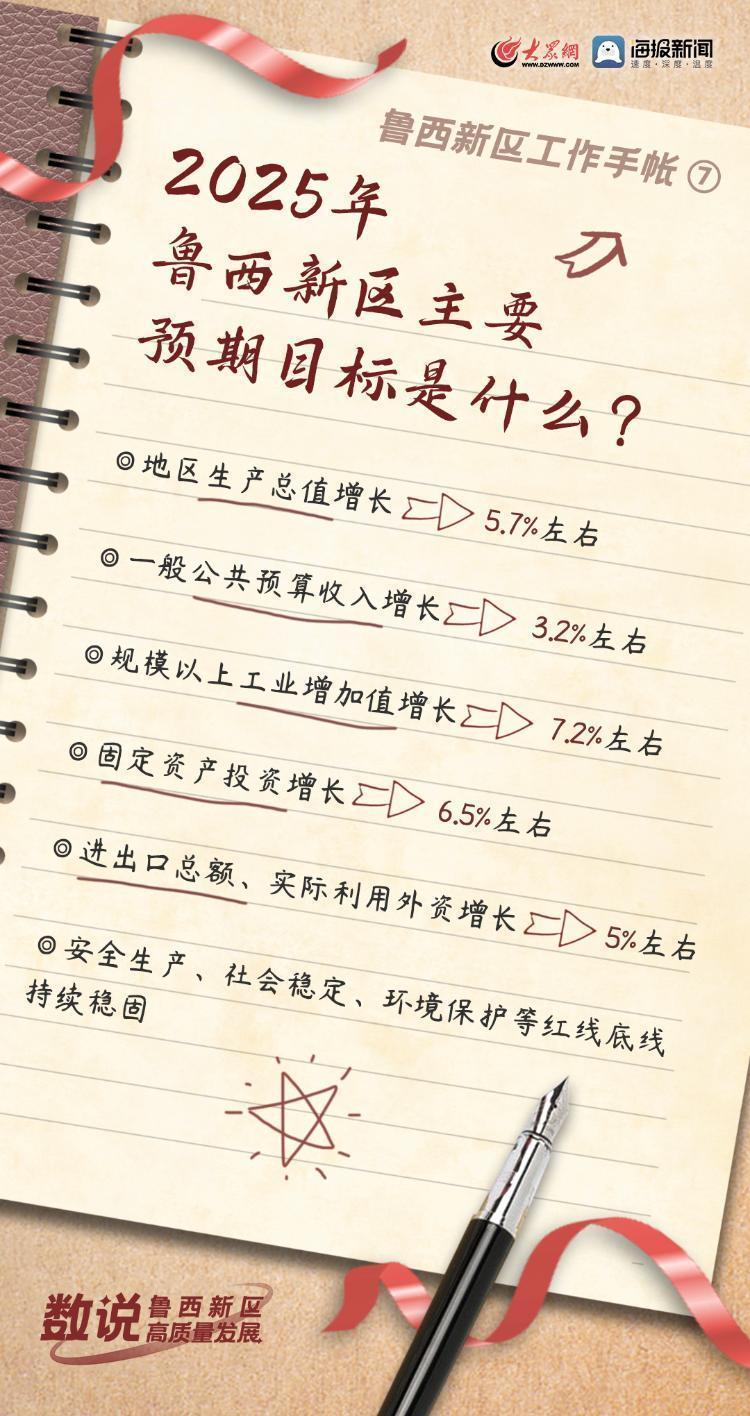 大眾網
WWW.DZWWW.COM
海报新闻
速度·深度·温度
鲁西新区工作手帐⑦
2025年
鲁西新区主要
预期目标是什么？
◎地区生产总值增长 5.7%左右
◎一般公共预算收入增长 3.2%左右
◎规模以上工业增加值增长 7.2%左右
◎固定资产投资增长 6.5%左右
◎进出口总额、实际利用外资增长 5%左右
◎安全生产、社会稳定、环境保护等红线底线
持续稳固
数说 鲁西新区
高质量发展